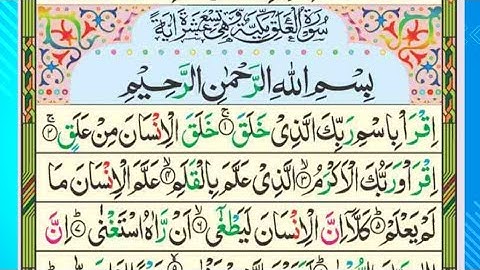 سُوْرَةُ الْعَلَقِ مَكِّيَّةٌ وَّهِيَ تِسْعَ عَشْرَةَ اٰيَةً
بِسْمِ اللّٰهِ الرَّحْمٰنِ الرَّحِيْمِ
اِقْرَاْ بِاسْمِ رَبِّكَ الَّذِىْ خَلَقَ ۚ‏﴿۱﴾ خَلَقَ الْاِنْسَانَ مِنْ عَلَقٍ ۚ‏﴿۲﴾
اِقْرَاْ وَرَبُّكَ الْاَكْرَمُ ۙ‏﴿۳﴾ الَّذِىْ عَلَّمَ بِالْقَلَمِ ۙ‏﴿۴﴾ عَلَّمَ الْاِنْسَانَ مَا
لَمْ يَعْلَمْ ؕ‏﴿۵﴾ كَلَّاۤ اِنَّ الْاِنْسَانَ لَيَطْغٰٓى ۙ‏﴿۶﴾ اَنْ رَّاٰهُ اسْتَغْنٰى ؕ‏﴿۷﴾ اِنَّ